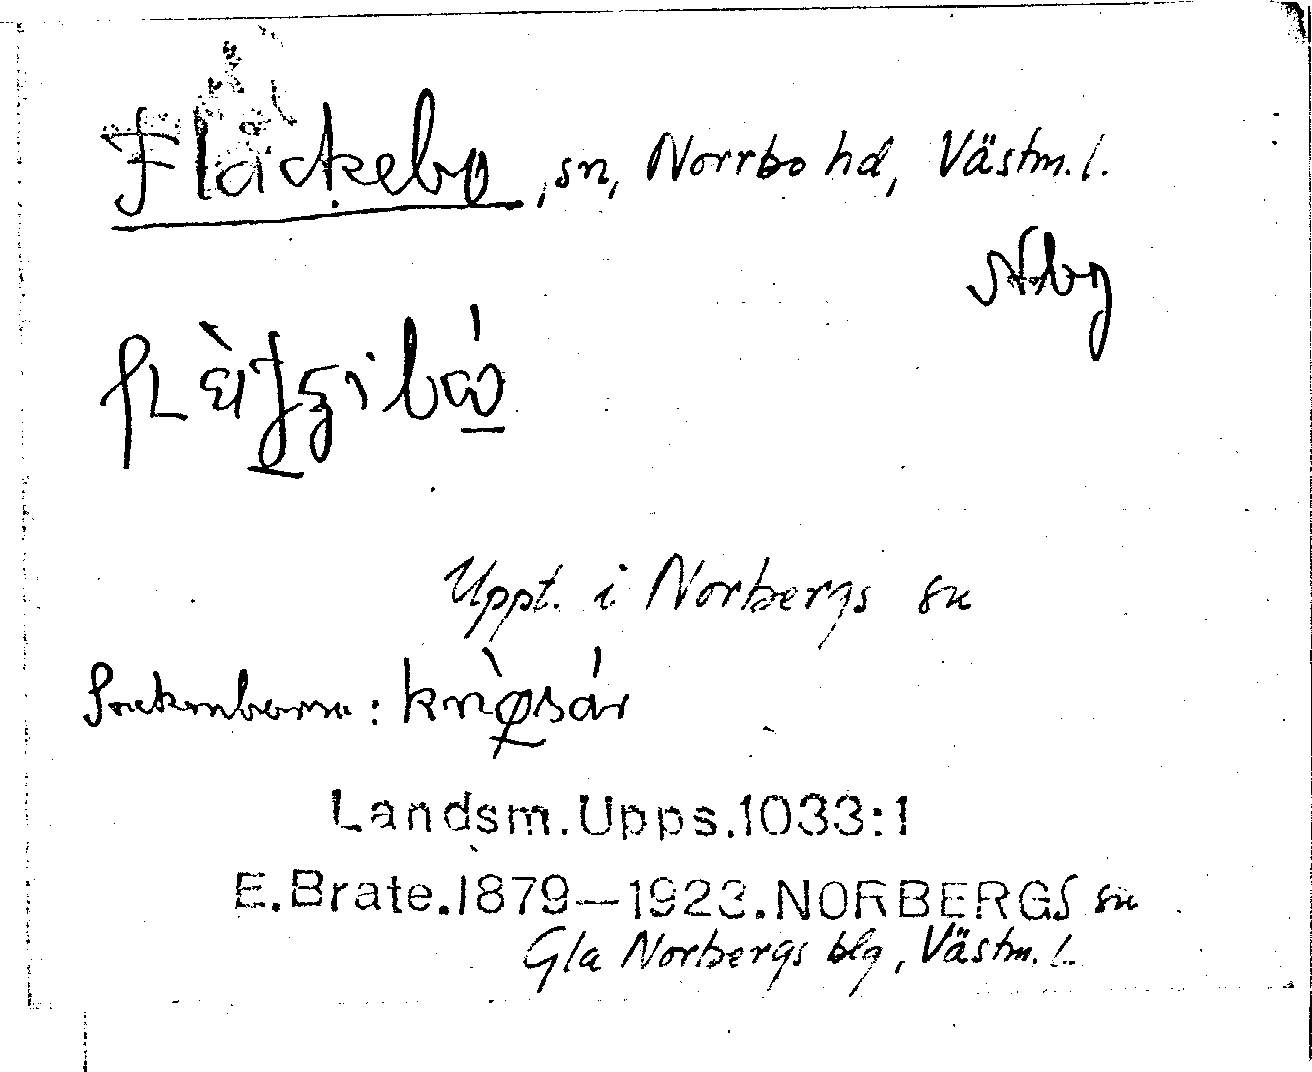 Fläckebo, sn, Norrbo hd, Västm. l.
Nbg
Uppt. i Norbergs sn
Sockenborna: knǫ̀sár
Landsm. Upps. 1033:1
E. Brate. 1879–1923. NORBERGS sn
Gla Norbergs blg, Västm. l.